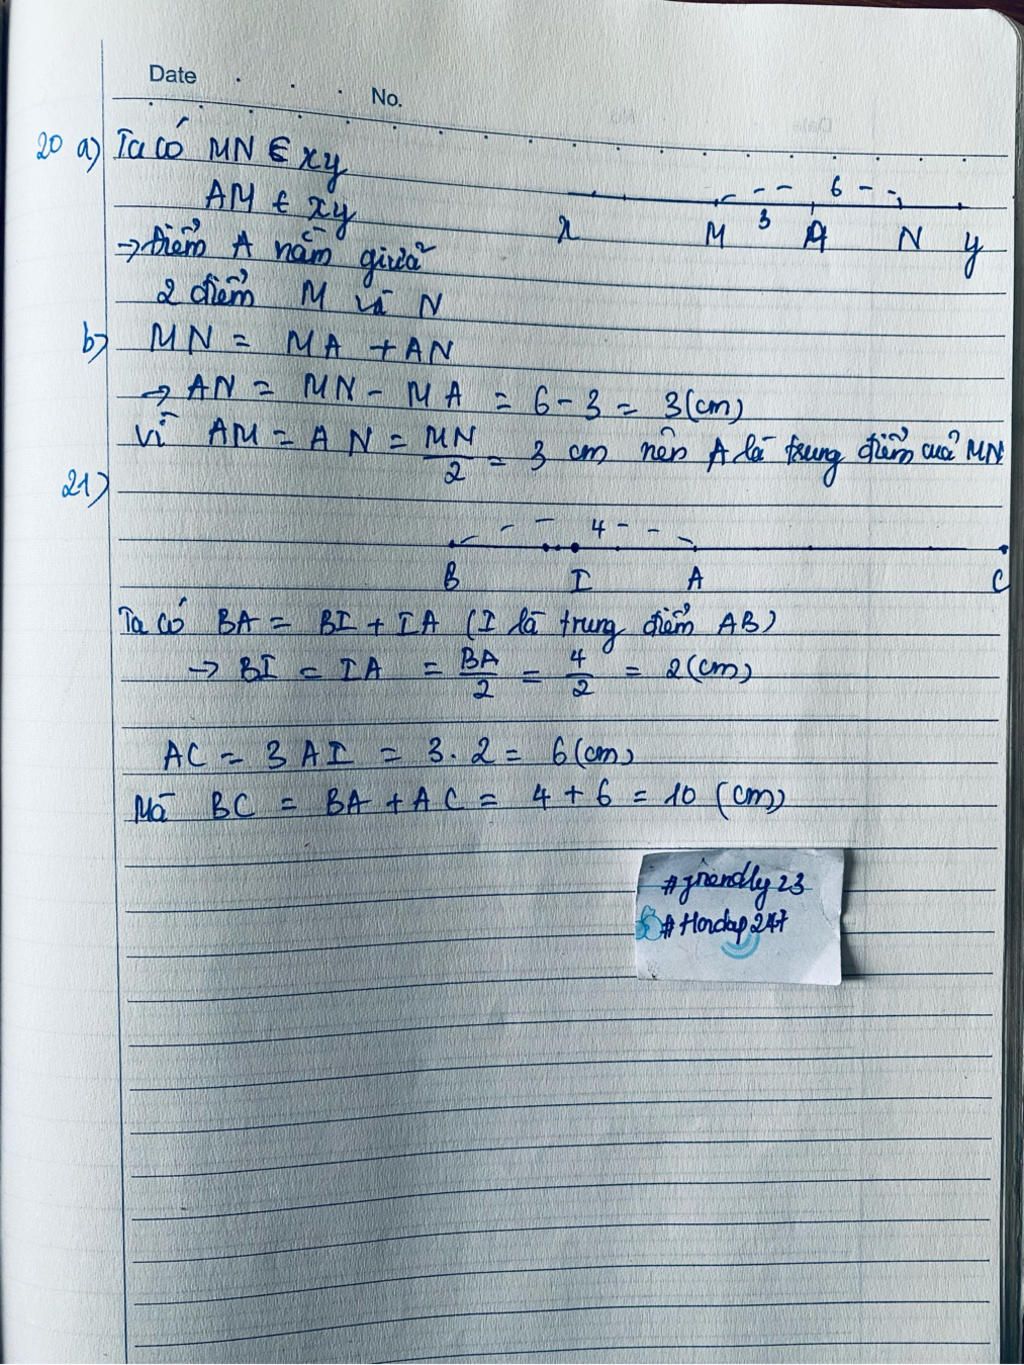 Date . . .
No.
20 a) Ta có MN ∈ xy
AM ∈ xy
→ điểm A nằm giữa
2 điểm M và N
6
3
x M A N y
b) MN = MA + AN
→ AN = MN - MA = 6 - 3 = 3(cm)
Vì AM = AN = MN/2 = 3 cm nên A là trung điểm của MN
21)
4
B I A C
Ta có BA = BI + IA (I là trung điểm AB)
→ BI = IA = BA/2 = 4/2 = 2(cm)
AC = 3AI = 3.2 = 6(cm)
Mà BC = BA + AC = 4 + 6 = 10 (cm)
#friendly23
#Hoidap247